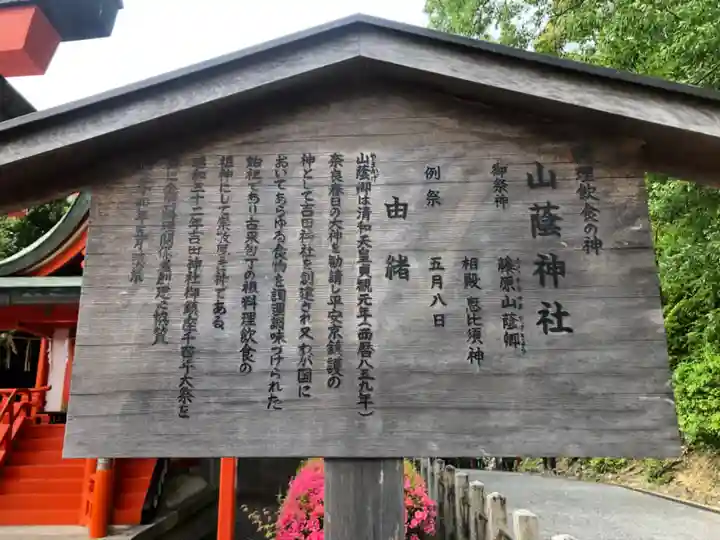 理飲食の神
山蔭神社
御祭神 藤原山蔭卿
相殿 恵比須神
例祭 五月八日
由緒
山蔭卿は清和天皇貞観元年(西暦八五九年)
奈良春日の大神を勧請し平安京鎮護の
神として吉田神社を創建され又わが国に
おいてあらゆる食物を調理調味づけられた
始祖であり古来包丁の祖料理飲食の
祖神にして崇敬
昭和三十二年吉田神社御鎮座千百年大祭を